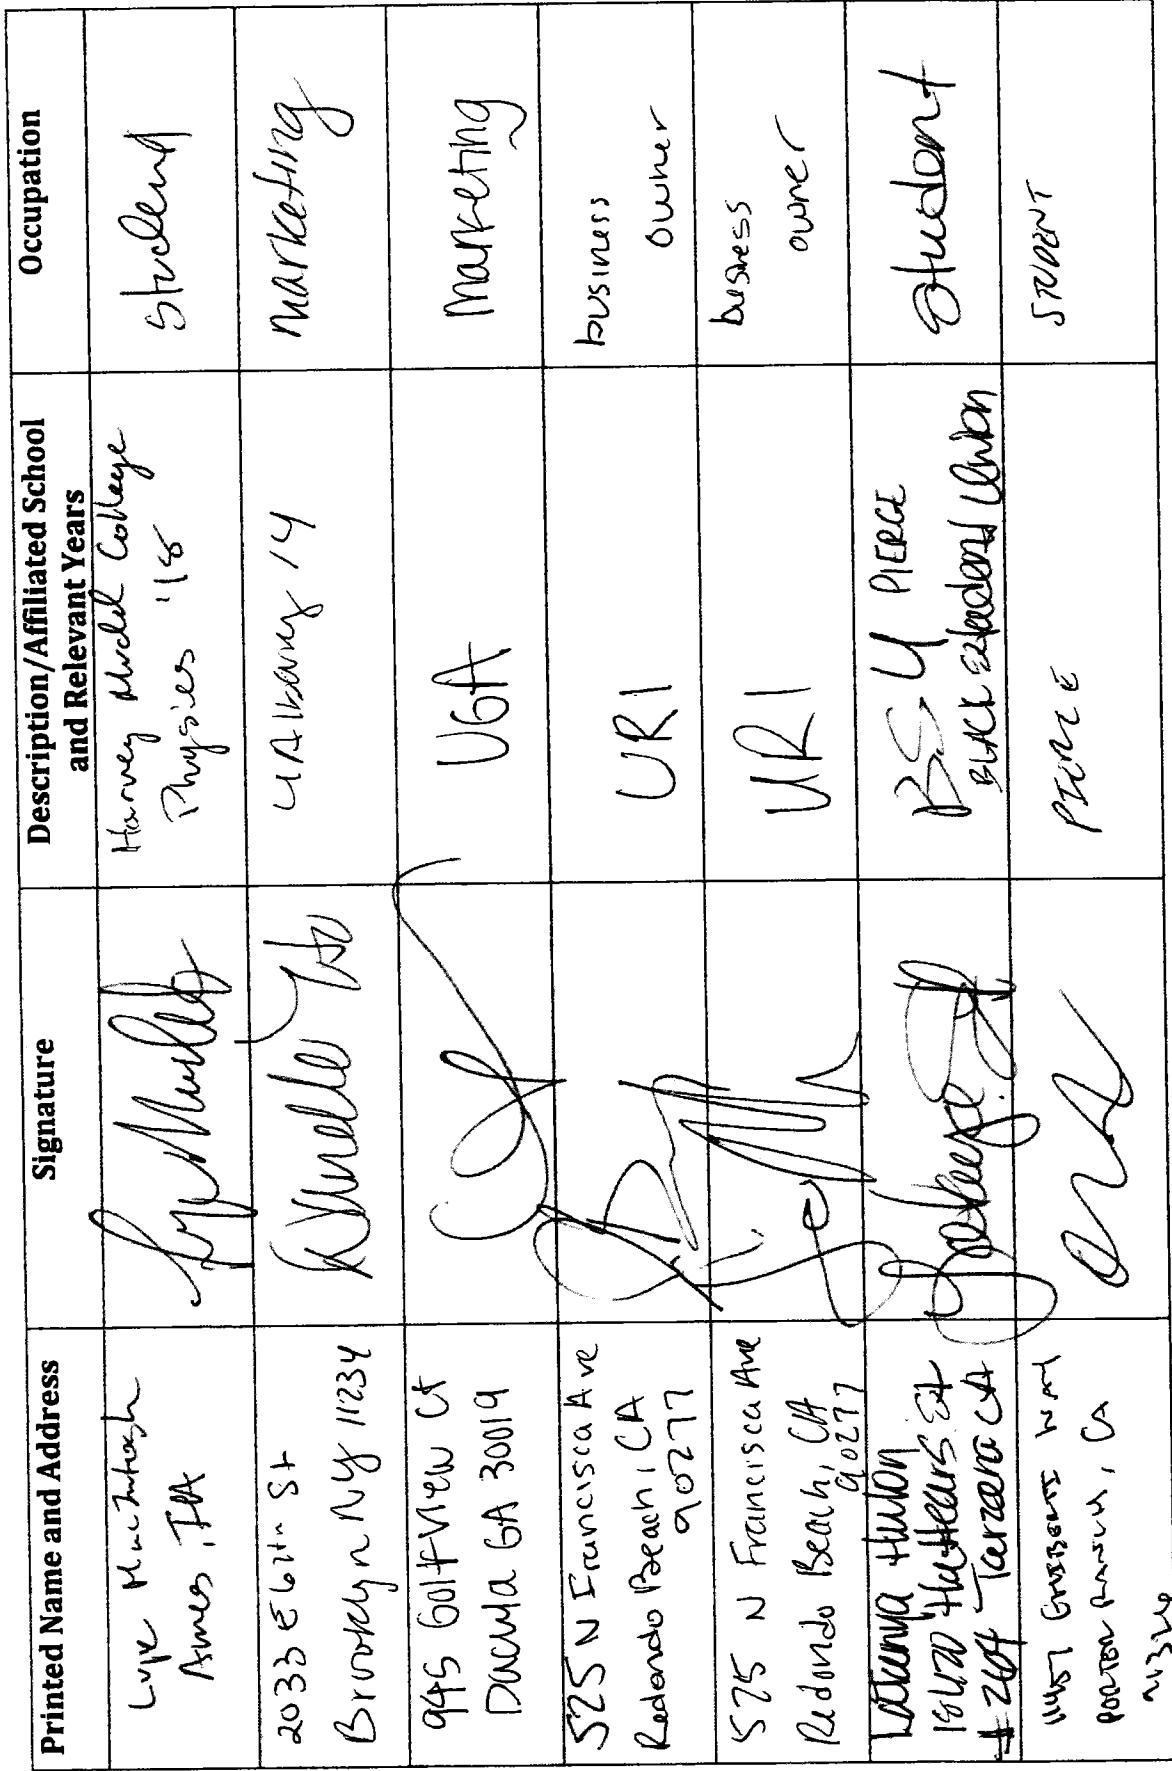 Printed Name and Address
Signature
Description/Affiliated School
and Relevant Years
Occupation
Ames, IA
Harvey Mudd College
Physics '18
Student
2033 E 67th St
Brooklyn NY 11234
Danielle
UAlbany 14
Marketing
945 Golf View Ct
Dacula GA 30019
UGA
Marketing
525 N Francisca Ave
Redondo Beach, CA
90277
URI
business
owner
525 N Francisca Ave
Redondo Beach, CA
90277
URI
business
owner
#264 Tarzana CA
BSU PIERCE
BLACK Student Union
Student
PORTER RANCH, CA
PIERCE
STUDENT